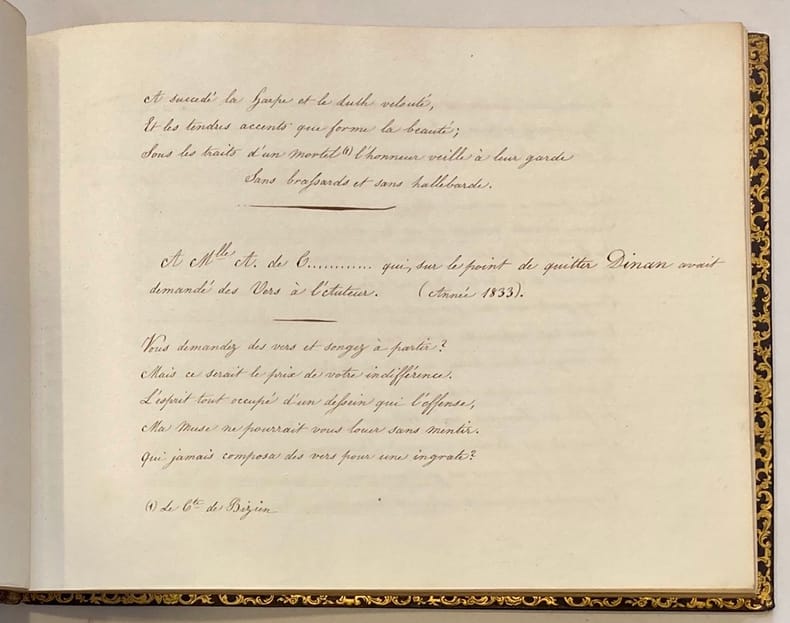 A succedé la harpe et le duth velouté,
Et les tendres accents que forme la beauté;
Sous les traits d'un mortel (1) l'honneur veille à leur garde
Sans brassards et sans hallebarde.
A Mlle A. de C............ qui, sur le point de quitter Dinan avait
demandé des Vers à l'Auteur. (Année 1833).
Vous demandez des vers et songez à partir?
Mais ce serait le prix de votre indifférence.
L'esprit tout occupé d'un dessein qui l'offense,
Ma Muse ne pourrait vous louer sans mentir.
Qui jamais composa des vers pour une ingrate?
(1) Le Cte de Bizien